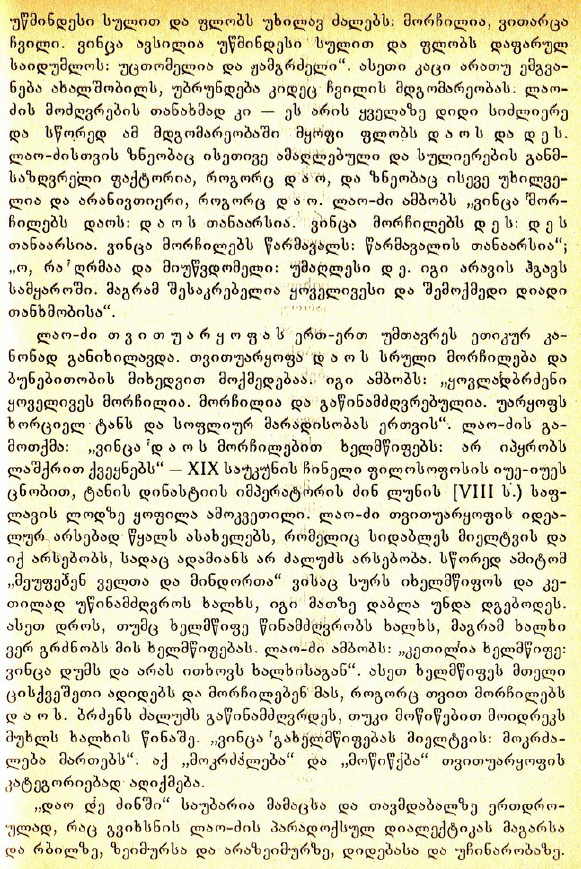 უწმინდესი სულით და ფლობს უხილავ ძალებს. მორჩილია, ვითარცა
ჩვილი. ვინცა ავსილია უწმინდესი სულით და ფლობს დაფარულ
საიდუმლოს: უცთომელია და ჟამგრძელი“. ასეთი კაცი არათუ ემგვა-
ნება ახალშობილს, უბრუნდება კიდეც ჩვილის მდგომარეობას. ლაო-
ძის მოძღვრების თანახმად კი — ეს არის ყველაზე დიდი სიძლიერე
და სწორედ ამ მდგომარეობაში მყოფი ფლობს დ ა ო ს და დ ე ს.
ლაო-ძისთვის ზნეობაც ისეთივე ამაღლებული და სულიერების განმ-
საზღვრელი ფაქტორია, როგორც დ ა ო, და ზნეობაც ისევე უხილვე-
ლია და არანივთიერი, როგორც დ ა ო. ლაო-ძი ამბობს „ვინცა მორ-
ჩილებს დაოს: დ ა ო ს თანაარსია. ვინცა მორჩილებს დ ე ს: დ ე ს
თანაარსია. ვინცა მორჩილებს წარმავალს: წარმავალის თანაარსია“;
„ო, რა ღრმაა და მიუწვდომელი: უმაღლესი დ ე. იგი არავის ჰგავს
სამყაროში. მაგრამ შესაკრებელია ყოველივესი და შემოქმედი დიადი
თანხმობისა“.
ლაო-ძი თ ვ ი თ უ ა რ ყ ო ფ ა ს ერთ-ერთ უმთავრეს ეთიკურ კა-
ნონად განიხილავდა. თვითუარყოფა დ ა ო ს სრული მორჩილება და
ბუნებითობის მიხედვით მოქმედებაა. იგი ამბობს: „ყოვლადბრძენი
ყოველივეს მორჩილია. მორჩილია და გაწინამძღვრებულია. უარყოფს
ხორციელ ტანს და სოფლიურ მარადისობას ერთვის“. ლაო-ძის გა-
მოთქმა: „ვინცა დ ა ო ს მორჩილებით ხელმწიფებს: არ იპყრობს
ლაშქრით ქვეყნებს“ — XIX საუკუნის ჩინელი ფილოსოფოსის იუე-იუეს
ცნობით, ტანის დინასტიის იმპერატორის ძინ ლუნის [VIII ს.) საფ-
ლავის ლოდზე ყოფილა ამოკვეთილი. ლაო-ძი თვითუარყოფის იდეა-
ლურ არსებად წყალს ასახელებს, რომელიც სიდაბლეს მიელტვის და
იქ არსებობს, სადაც ადამიანს არ ძალუძს არსებობა. სწორედ ამიტომ
„მეუფებენ ველთა და მინდორთა“ ვისაც სურს იხელმწიფოს და კე-
თილად უწინამძღვროს ხალხს, იგი მათზე დაბლა უნდა დგებოდეს.
ასეთ დროს, თუმც ხელმწიფე წინამძღვრობს ხალხს, მაგრამ ხალხი
ვერ გრძნობს მის ხელმწიფებას. ლაო-ძი ამბობს: „კეთილია ხელმწიფე:
ვინცა დუმს და არას ითხოვს ხალხისაგან“. ასეთ ხელმწიფეს მთელი
ცისქვეშეთი ადიდებს და მორჩილებენ მას, როგორც თვით მორჩილებს
დ ა ო ს. ბრძენს ძალუძს გაწინამძღვრდეს, თუკი მოწიწებით მოიდრეკს
მუხლს ხალხის წინაშე. „ვინცა გახელმწიფებას მიელტვის: მოკრძა-
ლება მართებს“. აქ „მოკრძალება“ და „მოწიწება“ თვითუარყოფის
კატეგორიებად აღიქმება.
„დაო დე ძინში“ საუბარია მამაცსა და თავმდაბალზე ერთდრო-
ულად, რაც გვიხსნის ლაო-ძის პარადოქსულ დიალექტიკას მაგარსა
და რბილზე, ზეიმურსა და არაზეიმურზე, დიდებასა და უჩინარობაზე.